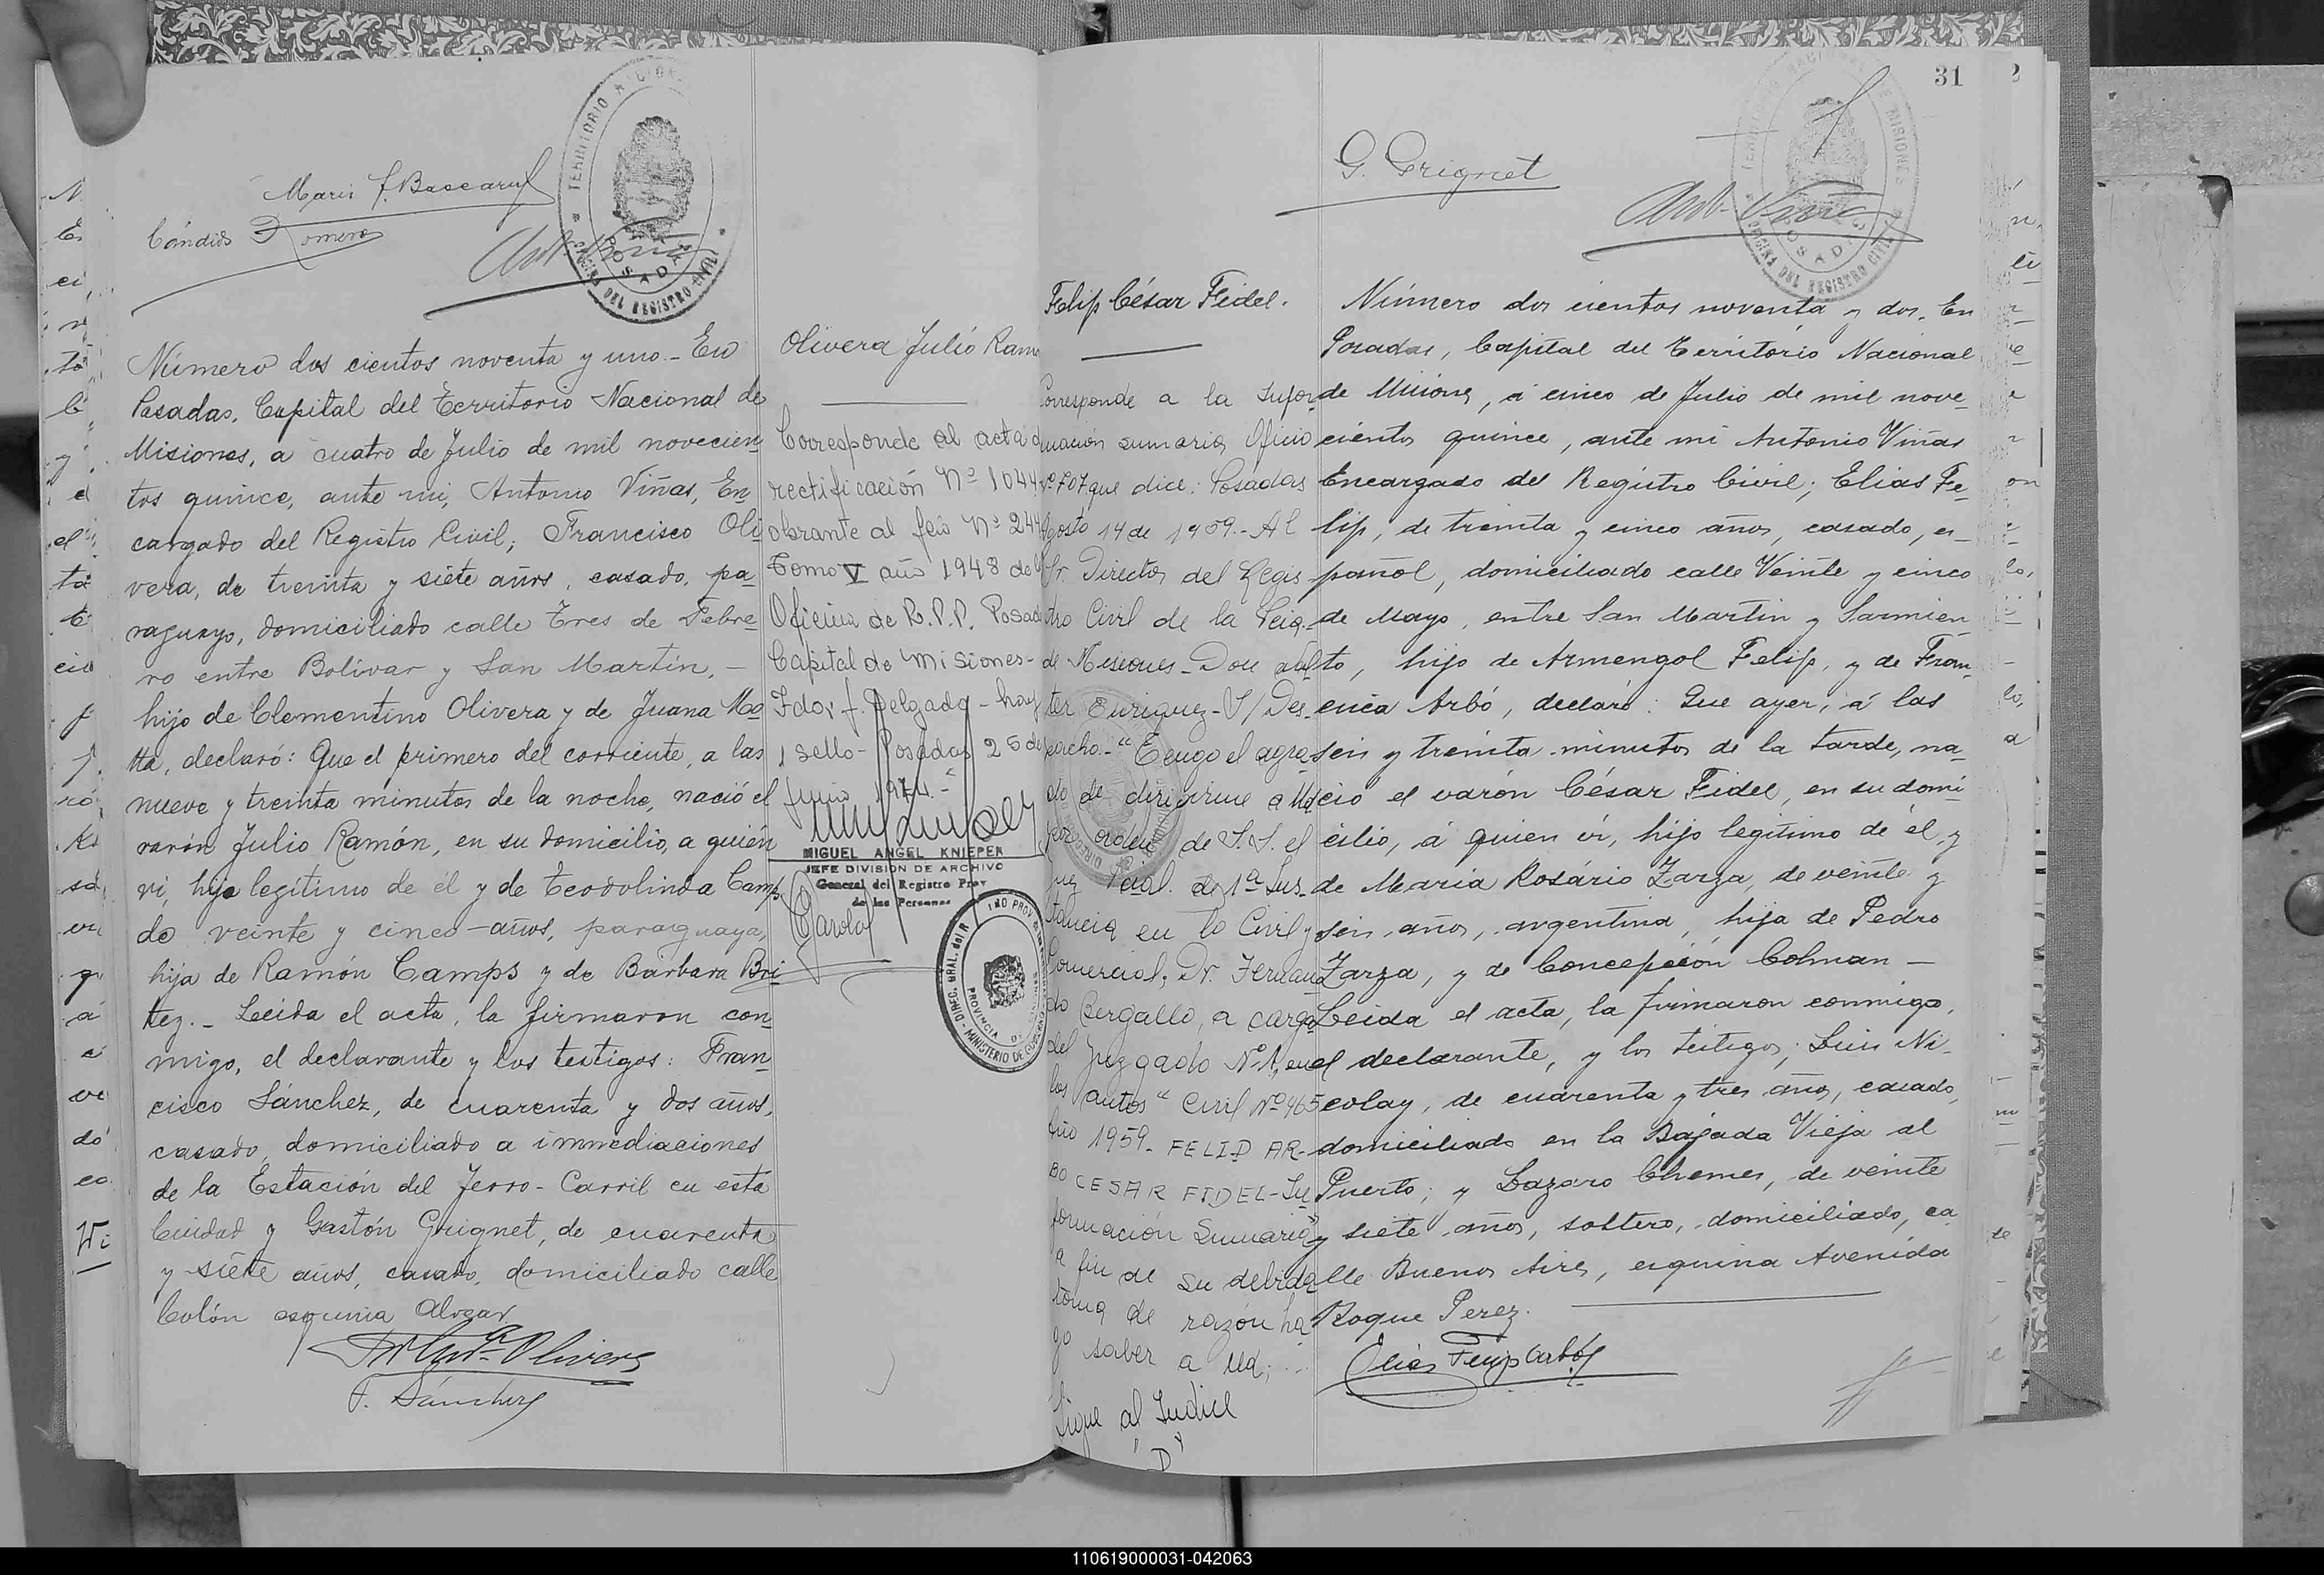 Maris f. Bascary
Cándido Romero
TERRITORIO NACIONAL
POSADAS
OFICINA DEL REGISTRO CIVIL
Número dos cientos noventa y uno.- En
Posadas, Capital del Territorio Nacional de
Misiones, a cuatro de Julio de mil novecien
tos quince, ante mi, Antonio Viñas, En
cargado del Registro Civil; Francisco Oli
vera, de treinta y siete años, casado, pa
raguayo, domiciliado calle Tres de Febre
ro entre Bolívar y San Martín, -
hijo de Clementino Olivera y de Juana Mo
tta, declaró: Que el primero del corriente, a las
nueve y treinta minutos de la noche, nació el
varón Julio Ramón, en su domicilio, a quién
vi, hijo legítimo de él y de Teodolinda Camps
de veinte y cinco años, paraguaya,
hija de Ramón Camps y de Bárbara Bri
tez.- Leida el acta, la firmaron con
migo, el declarante y los testigos: Fran
cisco Sánchez, de cuarenta y dos años,
casado, domiciliado a immediaciones
de la Estación del Ferro-Carril en esta
Ciudad y Gastón Grignet, de cuarenta
y siete años, casado, domiciliado calle
Colón esquina Alvear
Olivera
F. Sánchez
Olivera Julio Ram
Corresponde al acta d
rectificación Nº 1044
obrante al feio Nº 244
Tomo V año 1948 de
Oficina de R.P.P. Posad
Capital de Misiones-
Fdo: f. Delgado - hay
1 sello - Posadas 25 de
junio 1974.-
MIGUEL ANGEL KNIEPER
JEFE DIVISION DE ARCHIVO
General del Registro Prov
de las Personas
31
G. Grignet
Ant. Viñas
TERRITORIO NACIONAL DE MISIONES
POSADAS
OFICINA DEL REGISTRO CIVIL
Felip César Fidel.
Corresponde a la Infor-
mación sumaria Oficio
Nº 707 que dice: Posadas
Agosto 14 de 1959.- Al
Sr. Director del Regis
tro Civil de la Pcia.-
de Misiones - Don Wal
ter Enriquez - S/Des-
pacho.- "Tengo el agra-
do de dirigirme a Ud
por orden de S.S. el
juez Pcial. de 1ª Ins-
tancia en lo Civil y
Comercial, Dr. Fernan
do Bergallo, a cargo
del Juzgado Nº 1, en
los autos "Civil Nº 465
Año 1959 - FELIP AR-
BO CESAR FIDEL - In
formación Sumaria"
a fin de su debida
toma de razón ha
go saber a Ud;
Sigue al Indice
"D"
Número dos cientos noventa y dos. En
Posadas, Capital del Territorio Nacional
de Misiones, á cinco de Julio de mil nove-
cientos quince, ante mi Antonio Viñas
Encargado del Registro Civil; Elias Fe-
lip, de treinta y cinco años, casado, es-
pañol, domiciliado calle Veinte y cinco
de Mayo, entre San Martin y Sarmien
to, hijo de Armengol Felip, y de Fran-
cisca Arbó, declaró: Que ayer, á las
seis y treinta minutos de la tarde, na-
ció el varón César Fidel, en su domi-
cilio, á quien vi, hijo legitimo de él y
de Maria Rosário Zarza, de veinte y
seis años, argentina, hija de Pedro
Zarza, y de Concepción Colman -
Leida el acta, la firmaron conmigo,
el declarante, y los testigos; Luis Ni-
colay, de cuarenta y tres años, casado,
domiciliado en la Bajada Vieja al
Puerto; y Lazaro Chemes, de veinte
y siete años, soltero, domiciliado, ca
lle Buenos Aires, esquina Avenida
Roque Perez.
Elias Felip Arbó
110619000031-042063